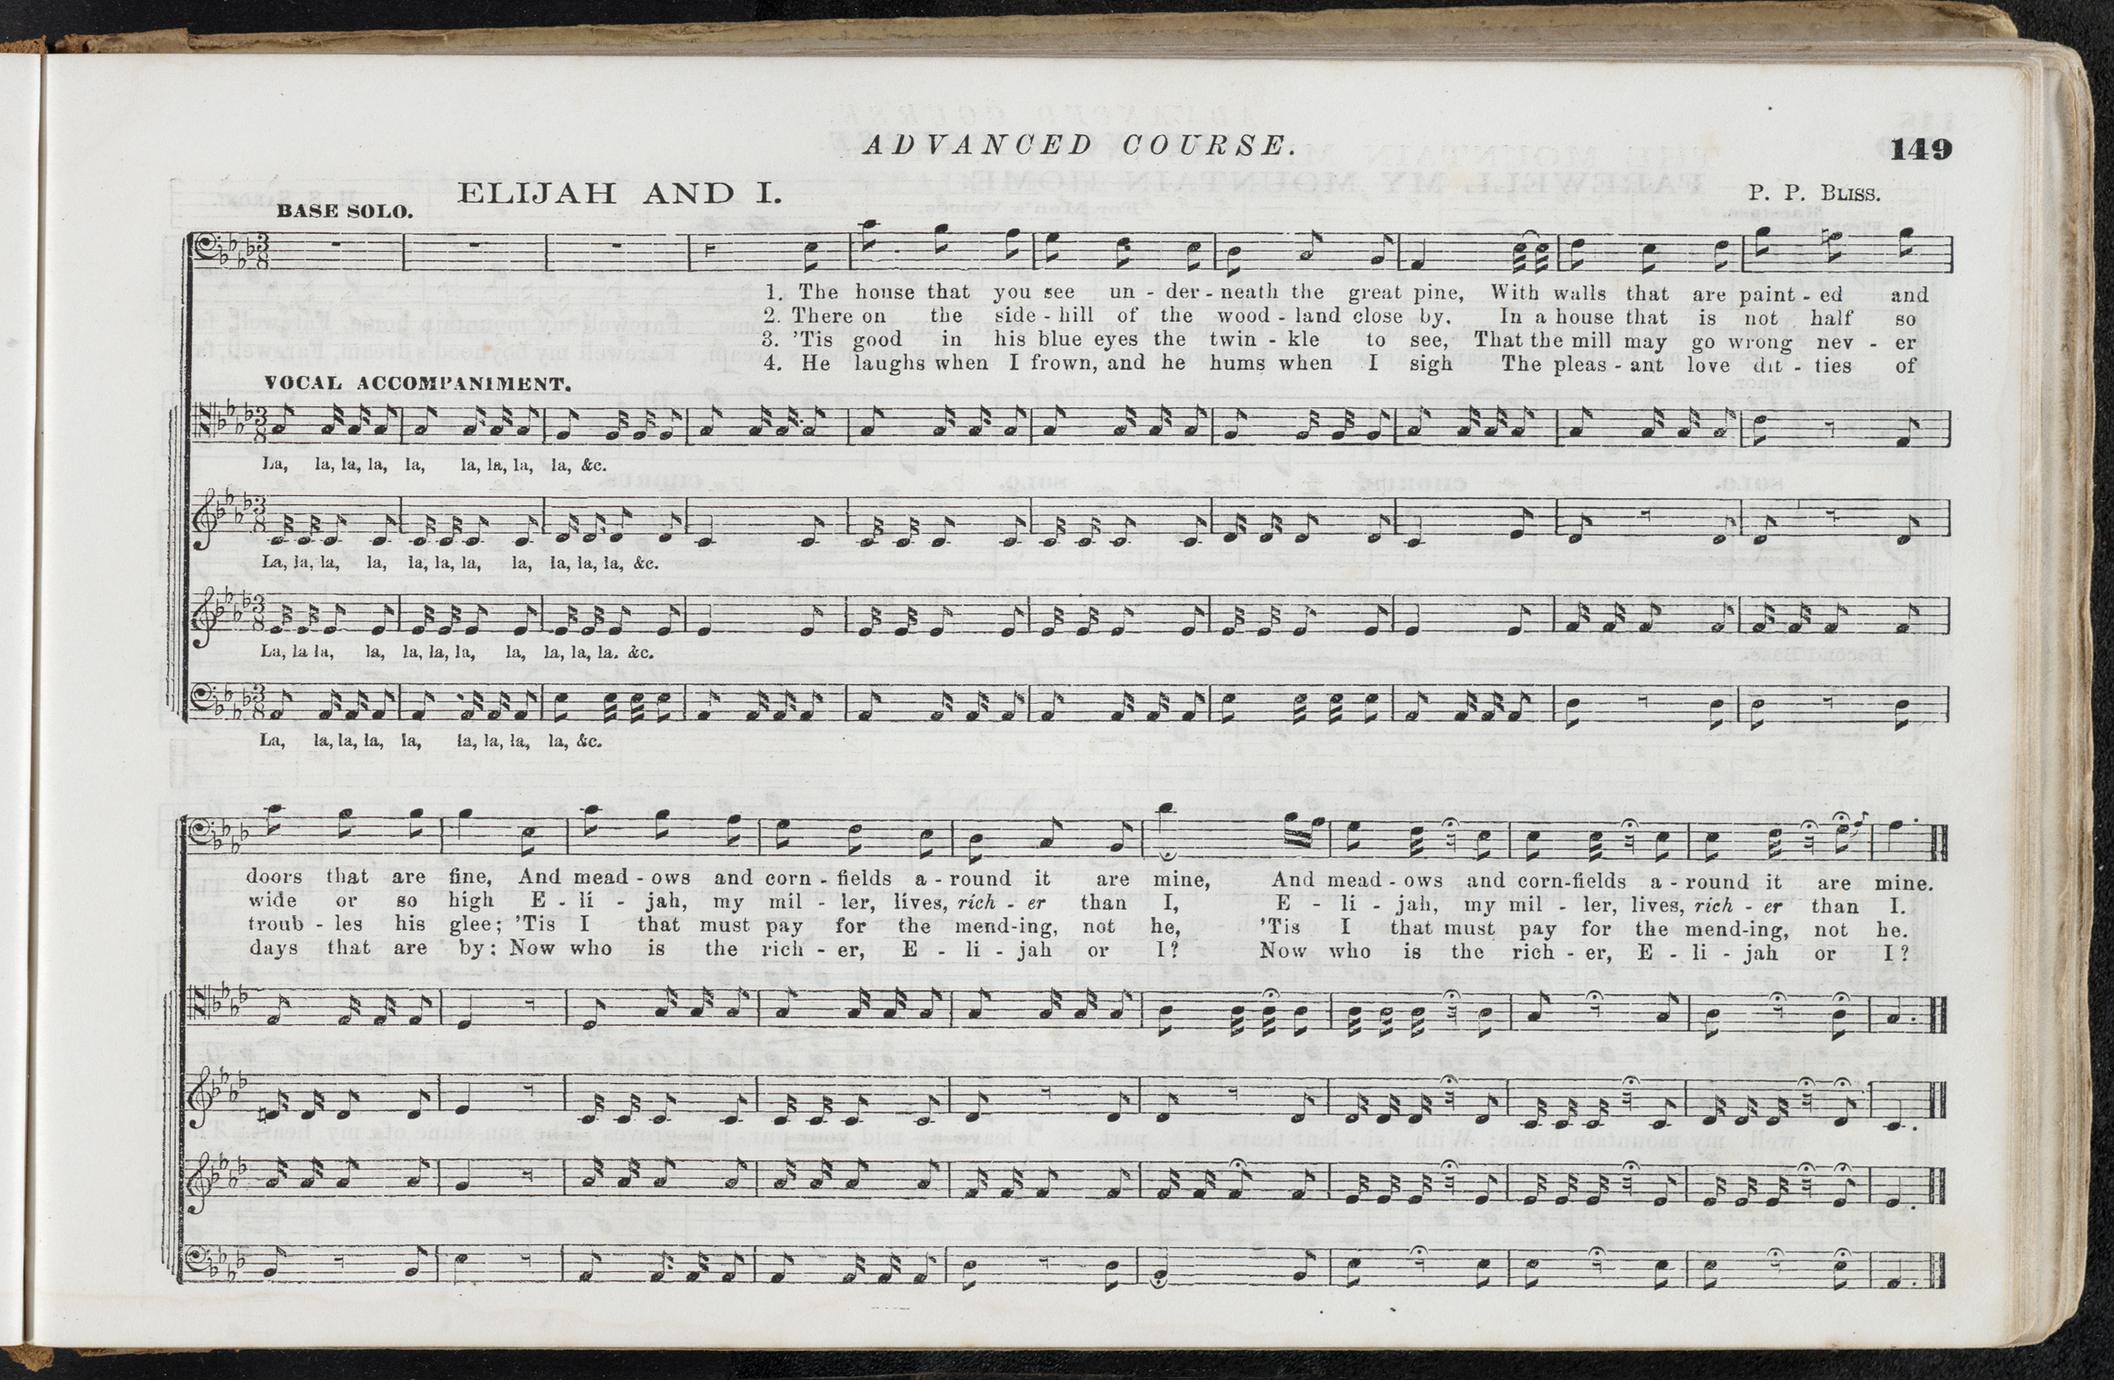 ADVANCED COURSE.
149
ELIJAH AND I.
P. P. BLISS.
BASE SOLO.
1. The house that you see un - der - neath the great pine, With walls that are paint - ed and
2. There on the side - hill of the wood - land close by. In a house that is not half so
3. 'Tis good in his blue eyes the twin - kle to see, That the mill may go wrong nev - er
4. He laughs when I frown, and he hums when I sigh The pleas - ant love dit - ties of
VOCAL ACCOMPANIMENT.
La, la, la, la, la, la, la, la, la, &c.
La, la, la, la, la, la, la, la, la, la, la, &c.
La, la la, la, la, la, la, la, la, la, la. &c.
La, la, la, la, la, la, la, la, la, &c.
doors that are fine, And mead - ows and corn - fields a - round it are mine, And mead - ows and corn-fields a - round it are mine.
wide or so high E - li - jah, my mil - ler, lives, rich - er than I, E - li - jah, my mil - ler, lives, rich - er than I.
troub - les his glee; 'Tis I that must pay for the mend-ing, not he, 'Tis I that must pay for the mend-ing, not he.
days that are by: Now who is the rich - er, E - li - jah or I? Now who is the rich - er, E - li - jah or I?